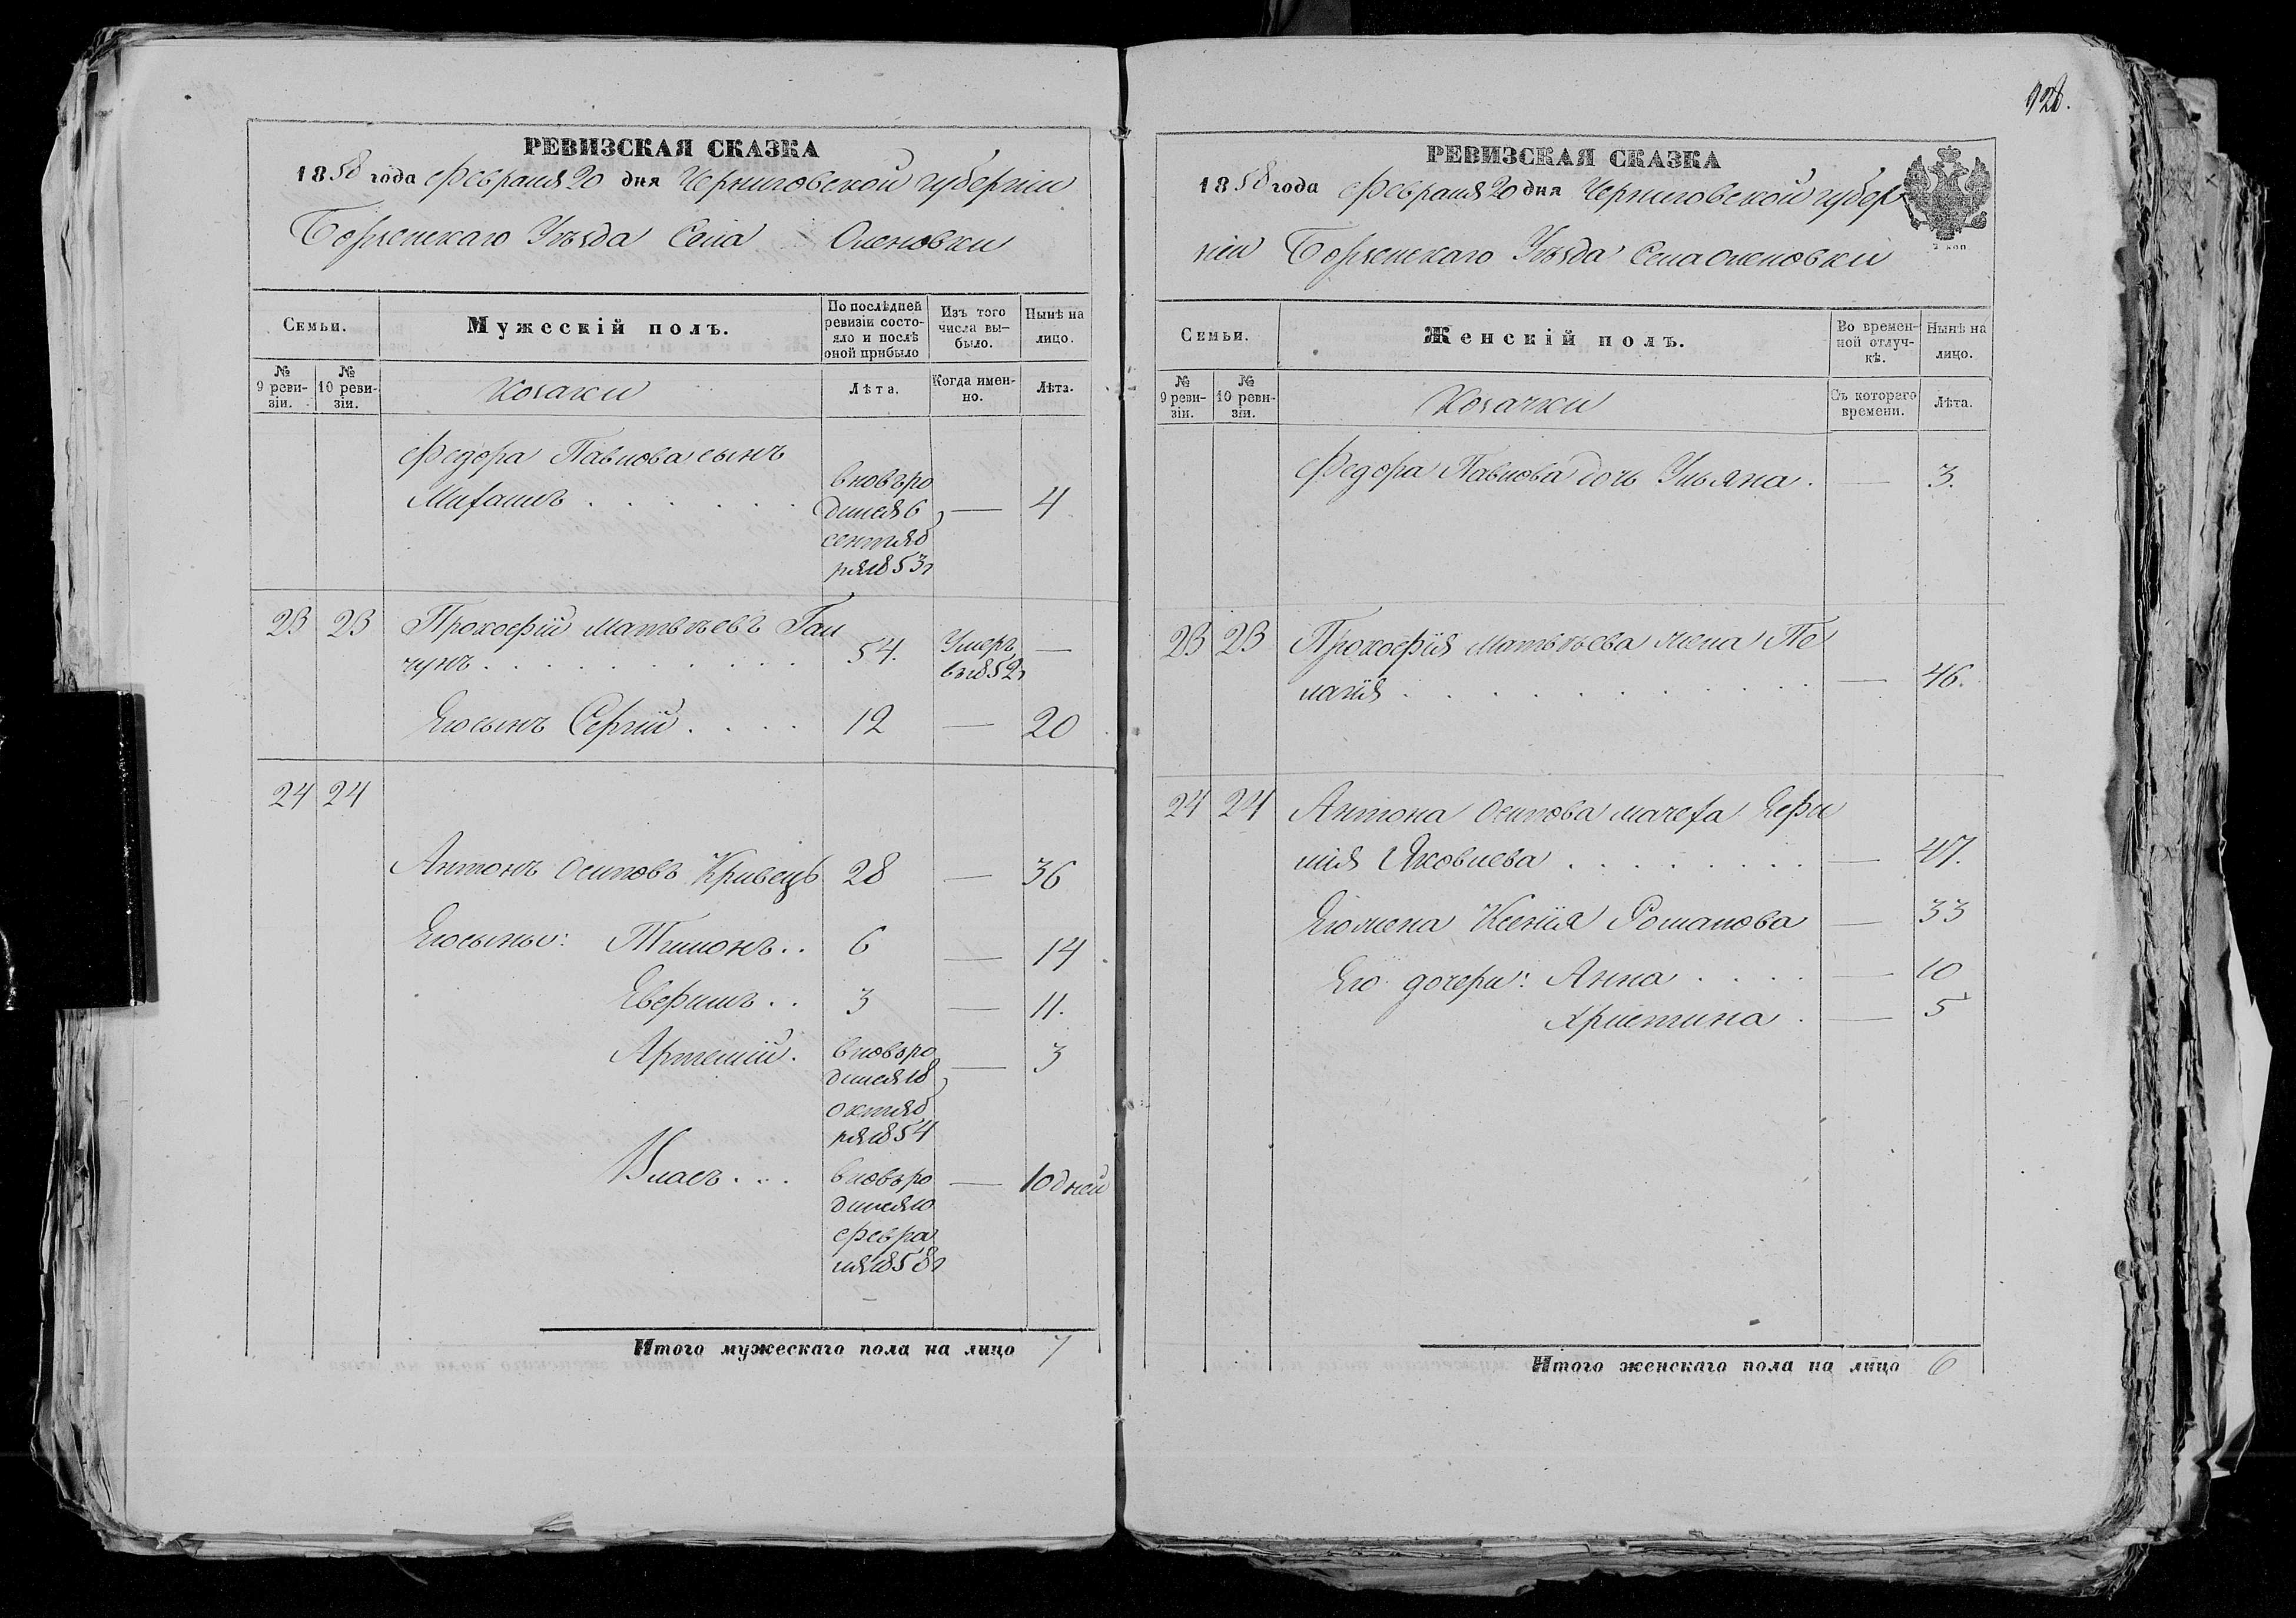 РЕВИЗСКАЯ СКАЗКА
1858 года Февраля 20 дня Черниговской губерніи
Борзенскаго Уѣзда Села Оленовки
Семьи.
Мужескій полъ.
По послѣдней ревизіи состояло и послѣ оной прибыло
Изъ того числа выбыло.
Нынѣ на лицо.
№ 9 ревизіи.
№ 10 ревизіи.
Козаки
Лѣта.
Когда именно.
Лѣта.
Федора Павлова сынъ
Михаилъ . . . . . . вновьро
дился 6 — 4
сентяб
ря 1853г
23 23 Прокофій Матвѣевъ Гал
чунъ . . . . . . . . . . 54. Умеръ —
въ 1852г
Егосынъ Сергій . . . . 12 — 20
24 24
Антонъ Осиповъ Кривецъ 28 — 36
Егосыны: Тимонъ . . 6 — 14
Евфимъ . . 3 — 11.
Артемій . вновьро — 3
дился 18
октяб
ря 1854
Власъ . . . вновьро — 10 дней
дился 10
февра
ля 1858г
Итого мужескаго пола на лицо 7
128.
РЕВИЗСКАЯ СКАЗКА
1858 года Февраля 20 дня Черниговской губер
ніи Борзенскаго Уѣзда Села Оленовки
2 коп
Семьи.
Женскій полъ.
Во временной отлучкѣ.
Нынѣ на лицо.
№ 9 ревизіи.
№ 10 ревизіи.
Козачки
Съ котораго времени.
Лѣта.
Федора Павлова дочь Ульяна . — 3.
23 23 Прокофія Матвѣева жена Пе
лагія . . . . . . . . . . . — 46.
24 24 Антона Осипова мачеха Ефи
мія Яковлева . . . . . . . . — 47.
Егожена Ксенія Романова — 33
Его дочери: Анна . . . . — 10
Христина . — 5
Итого женскаго пола на лицо 6